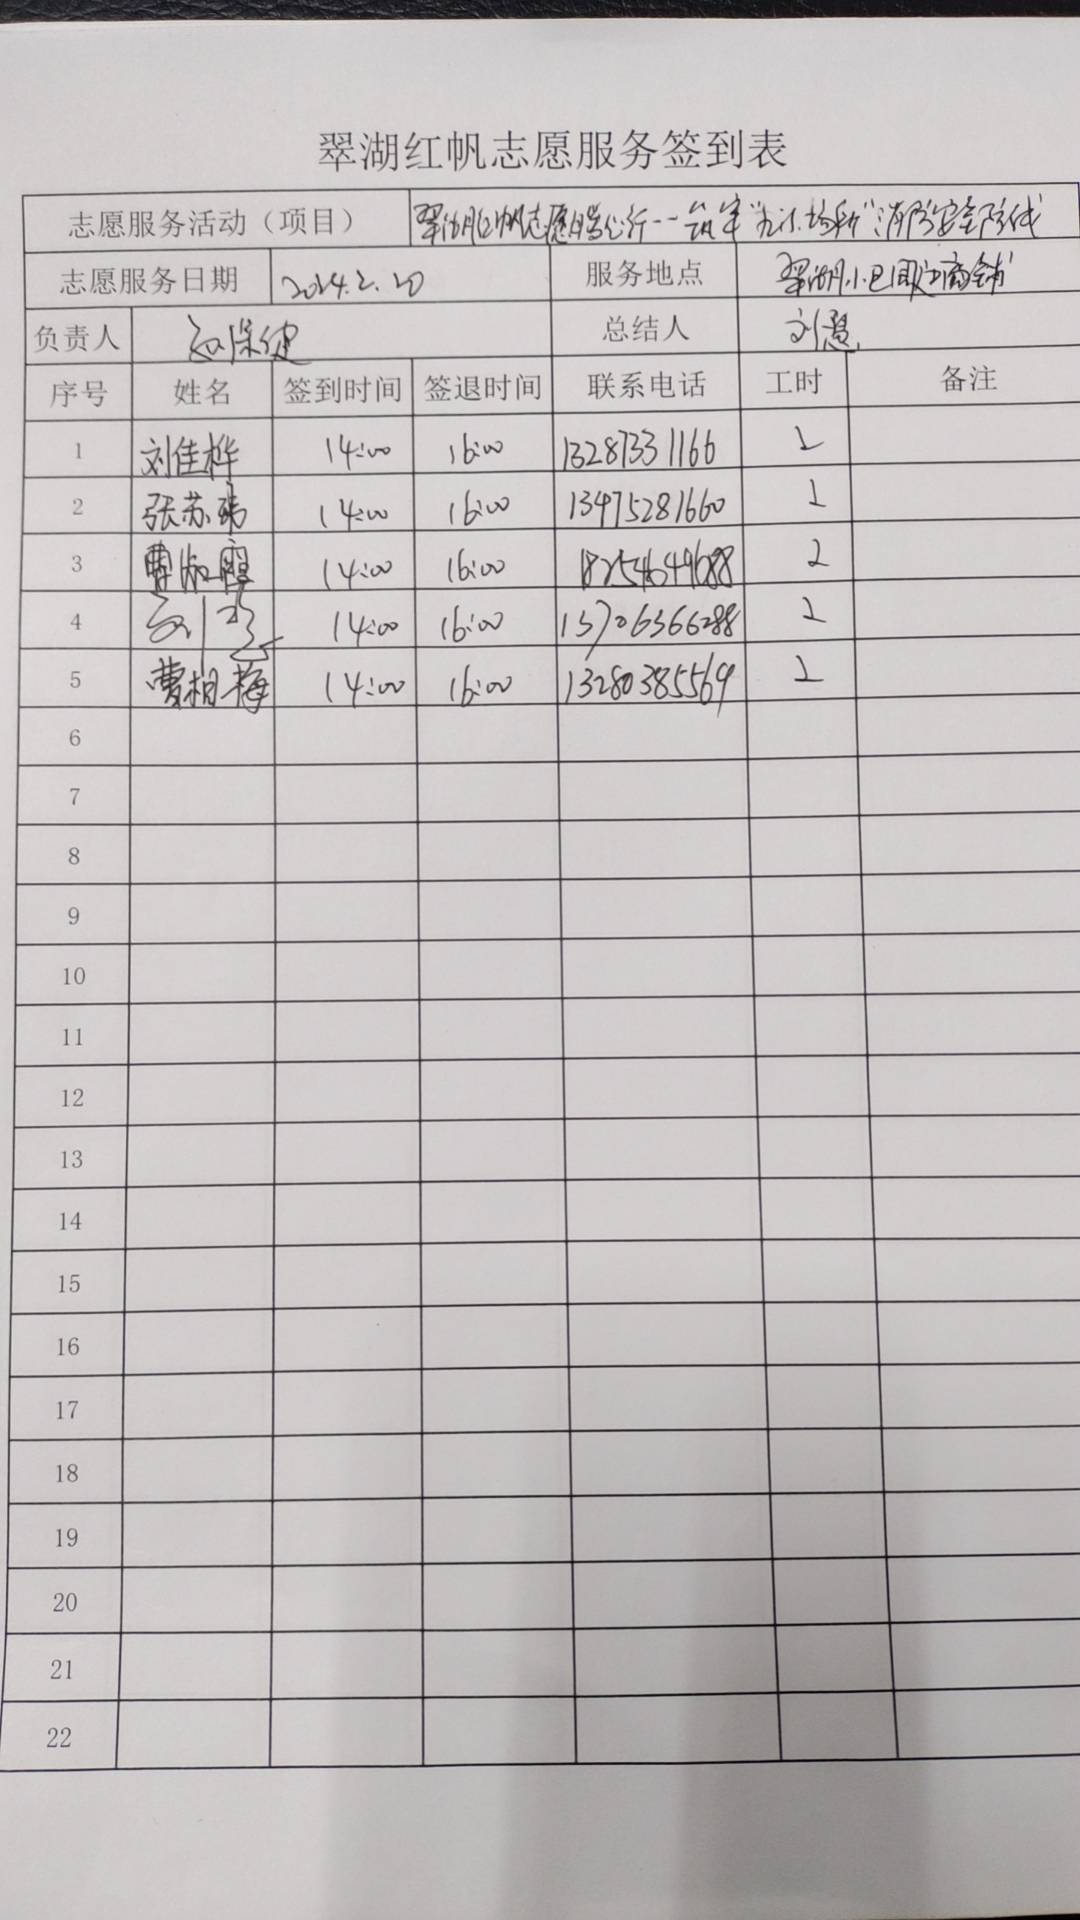 翠湖红帆志愿服务签到表
志愿服务活动（项目） 翠湖红帆志愿服务公行--筑牢"九小场所"消防安全防线
志愿服务日期 2024.2.20 服务地点 翠湖小区周边商铺
负责人 总结人 刘慧
序号 姓名 签到时间 签退时间 联系电话 工时 备注
1 刘佳桦 14:00 16:00 13287331166 2
2 张苏玮 14:00 16:00 13475281660 2
3 14:00 16:00 18254649688 2
4 14:00 16:00 13706366288 2
5 曹相梅 14:00 16:00 13280385569 2
6
7
8
9
10
11
12
13
14
15
16
17
18
19
20
21
22